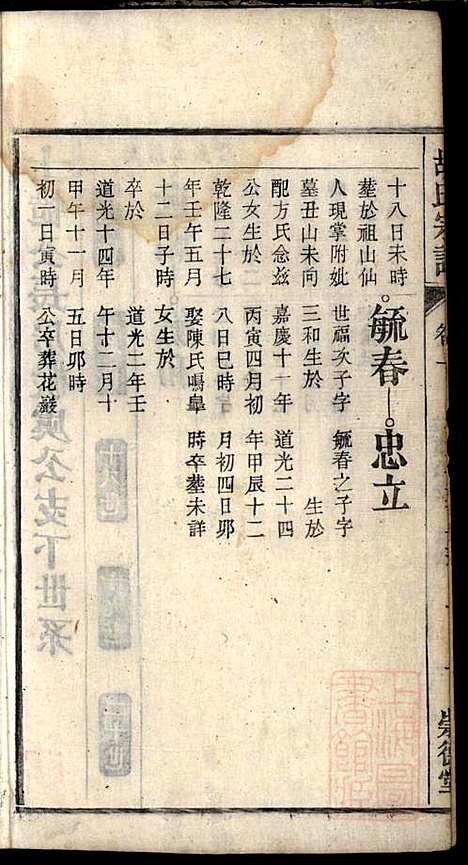 胡氏宗譜
崇德堂
十八日未時
塟於祖山仙
人現掌附妣
墓丑山未向
配方氏念兹
公女生於
乾隆二十七
年壬午五月
十二日子時
卒於
道光十四年
甲午十一月
初一日寅時
毓春
世福次子字
三和生於
嘉慶十一年
丙寅四月初
八日巳時
娶陳氏鳴臯
女生於
道光二年壬
午十二月十
五日卯時
公卒葬花巖
忠立
毓春之子字
生於
道光二十四
年甲辰十二
月初四日卯
時卒塟未詳
上海圖
書館藏